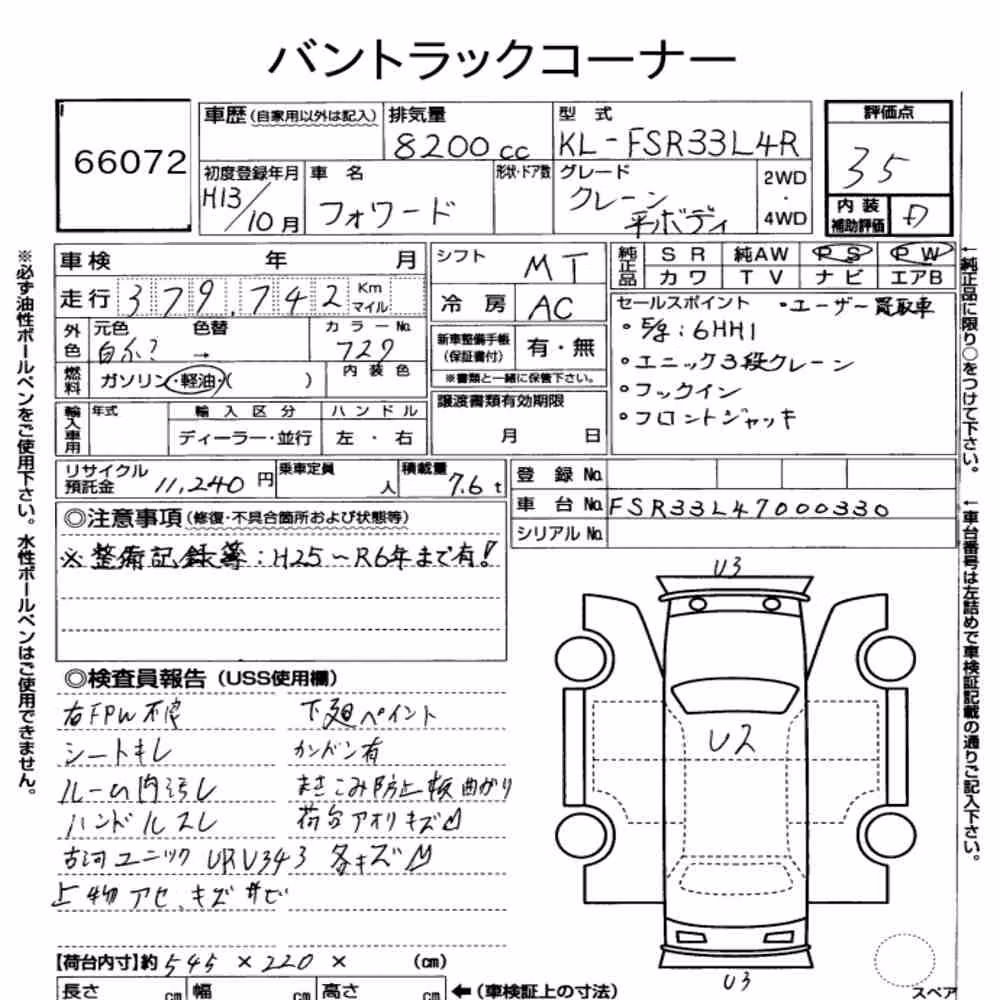 バントラックコーナー
66072
車歴 (自家用以外は記入)
排気量
8200 cc
型 式
KL-FSR33L4R
評価点
35
初度登録年月
H13/10月
車 名
フォワード
形状・ドア数
グレード
クレーン
平ボディ
2WD
・
4WD
内 装
補助評価
D
車 検 年 月
走 行 379,742 Km マイル
外色
元色 色替
白 →
カラーNo.
729
燃料
ガソリン・軽油・( )
内 装 色
輸入車用
年式
輸 入 区 分
ディーラー・並行
ハ ン ド ル
左 ・ 右
シフト
MT
冷 房
AC
新車整備手帳
(保証書付)
有・無
※書類と一緒に保管下さい。
譲渡書類有効期限
月 日
純正品
S R 純AW P S P W
カ ワ T V ナ ビ エアB
セールスポイント ・ユーザー買取車
・6HH1
・ユニック3段クレーン
・フックイン
・フロントジャッキ
リサイクル
預託金 11,240 円
乗車定員
人
積載量
7.6 t
登 録 No.
車 台 No. FSR33L47000330
シリアル No.
◎注意事項 (修復・不具合箇所および状態等)
※整備記録簿:H25〜R6年まで有!
◎検査員報告 (USS使用欄)
右FPW不良
シートキレ
ルーム内汚レ
ハンドルスレ
古河ユニック URV343 各キズ凹
上物 アセ、キズ サビ
下廻ペイント
カンバン有
まきこみ防止板曲がり
荷台アオリキズ凹
U3
U2
U3
スペア
【荷台内寸】約 545 × 220 × (cm)
長さ cm 幅 cm 高さ cm ←(車検証上の寸法)
※必ず油性ボールペンをご使用下さい。水性ボールペンはご使用できません。
←純正品に限り○をつけて下さい。
←車台番号は左詰めで車検証記載の通りご記入下さい。